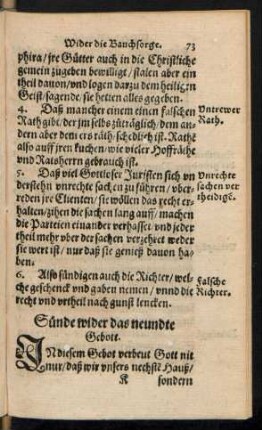 Wider die Bauchsorge. 73
phira/ jre Gütter auch in die Christliche
gemein zugeben bewilligt/ stalen aber ein
theil dauon/ vnd logen darzu dem heiligen
Geist/ sagende/ sie hetten alles gegeben.
4. Daß mancher einem einen falschen
Rath gibt/ der jm selbs zuträglich/ dem an-
dern aber dem ers räth/ schedlich ist. Rathe
also auff jren kuchen/ wie vieler Hoffräthe
vnd Ratsherrn gebrauch ist.
Vntrewer
Rath.
5. Daß viel Gottloser Juristen sich vn
derstehn vnrechte sachen zu führen/ vber-
reden jre Clienten/ sie wöllen das recht er-
halten/ zihen die sachen lang auff/ machen
die Parteien einander verhasset/ vnd jeder
theil mehr vber der sachen verzehret weder
sie wert ist/ nur daß sie genieß dauon ha-
ben.
Vnrechte
sachen ver
theidigē.
6. Also sündigen auch die Richter/ wel-
che geschenck vnd gaben nemen/ vnnd die
recht vnd vrtheil nach gunst lencken.
Falsche
Richter.
Sünde wider das neundte
Gebott.
IN diesem Gebot verbeut Gott nit
nur/ daß wir vnsers nechstē Hauß/
K sondern